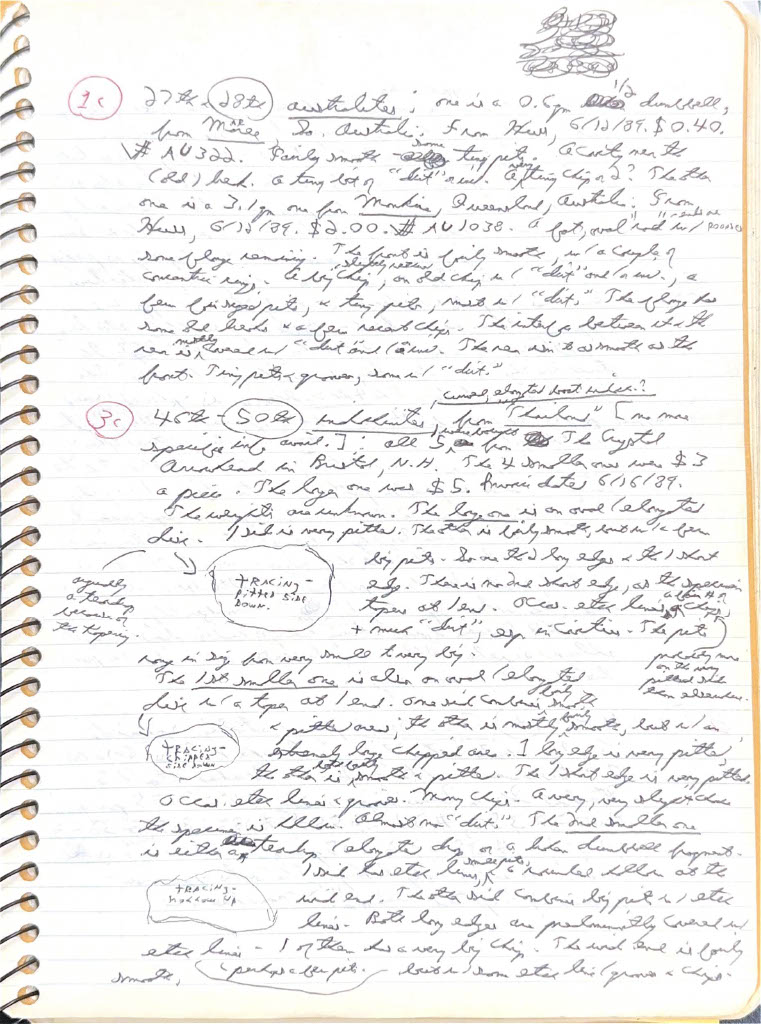 1c 27th - 28th australites; one is a 0.6 gm 1/2 dumbbell,
from Maree, So. Australia. From Huss, 6/12/89. $0.40.
# AU322. Fairly smooth some tiny pits. A cavity near the
(old) break. A tiny bit of "dirt" A tiny chip or 2? The other
one is a 3.1 gm one from Queensland, Australia. From
Huss, 6/12/89. $2.00. # AU1038. A fat, oval
some flange remaining. The front is fairly smooth, w/ a couple of
concentric rings. A big chip, an old chip w/ "dirt" a
few pits, & tiny pits, most w/ "dirt." The flange has
some old breaks & a few recent chips. The between it & the
rear is mostly covered w/ "dirt" The rear isn't as smooth as the
front. Tiny pits & grooves, some w/ "dirt."
3c 46th - 50th indochinites, from "Thailand" [no more
specific info avail.]: all 5 were bought from The Crystal
Arrowhead in Bristol, N.H. The 4 smaller ones were $3
a piece. The larger one was $5. Invoice dated 6/16/89.
The weights are unknown. The large one is an oval/elongated
disc. 1 side is very pitted. The other is fairly smooth, but w/ a few
big pits. So are the 2 long edges & the 1 short
edge. There is no 2nd short edge, as the specimen
tapers at 1 end. Occas. etch lines, chips,
+ much "dirt", esp. in cavities. The pits
TRACING-
PITTED SIDE
DOWN.
arguably
a teardrop
because of
the tapering.
range in size from very small to very big.
probably more
on the very
pitted side
than elsewhere.
The 1st smaller one is also an oval/elongated
disc w/ a taper at 1 end. One side combines fairly smooth
& pitted areas; the other is mostly fairly smooth, but w/ an
extremely large chipped area. 1 long edge is very pitted,
the other is smooth & pitted. The 1 short edge is very pitted.
TRACING-
CHIPPED
SIDE DOWN
Occas. etch lines & grooves. Many chips. A very, very slight
the specimen is hollow. Almost no "dirt." The 2nd smaller one
is either a teardrop/elongate disc or a broken dumbbell fragment.
1 side has etch lines, some pits, & a rounded hollow at the
wide end. The other side combines big pits w/ etch
lines. Both long edges are predominantly covered w/
TRACING-
HOLLOW UP
etch lines - 1 of them has a very big chip. The wide end is fairly
smooth, (perhaps a few pits) but w/ some etch lines/grooves & chips.